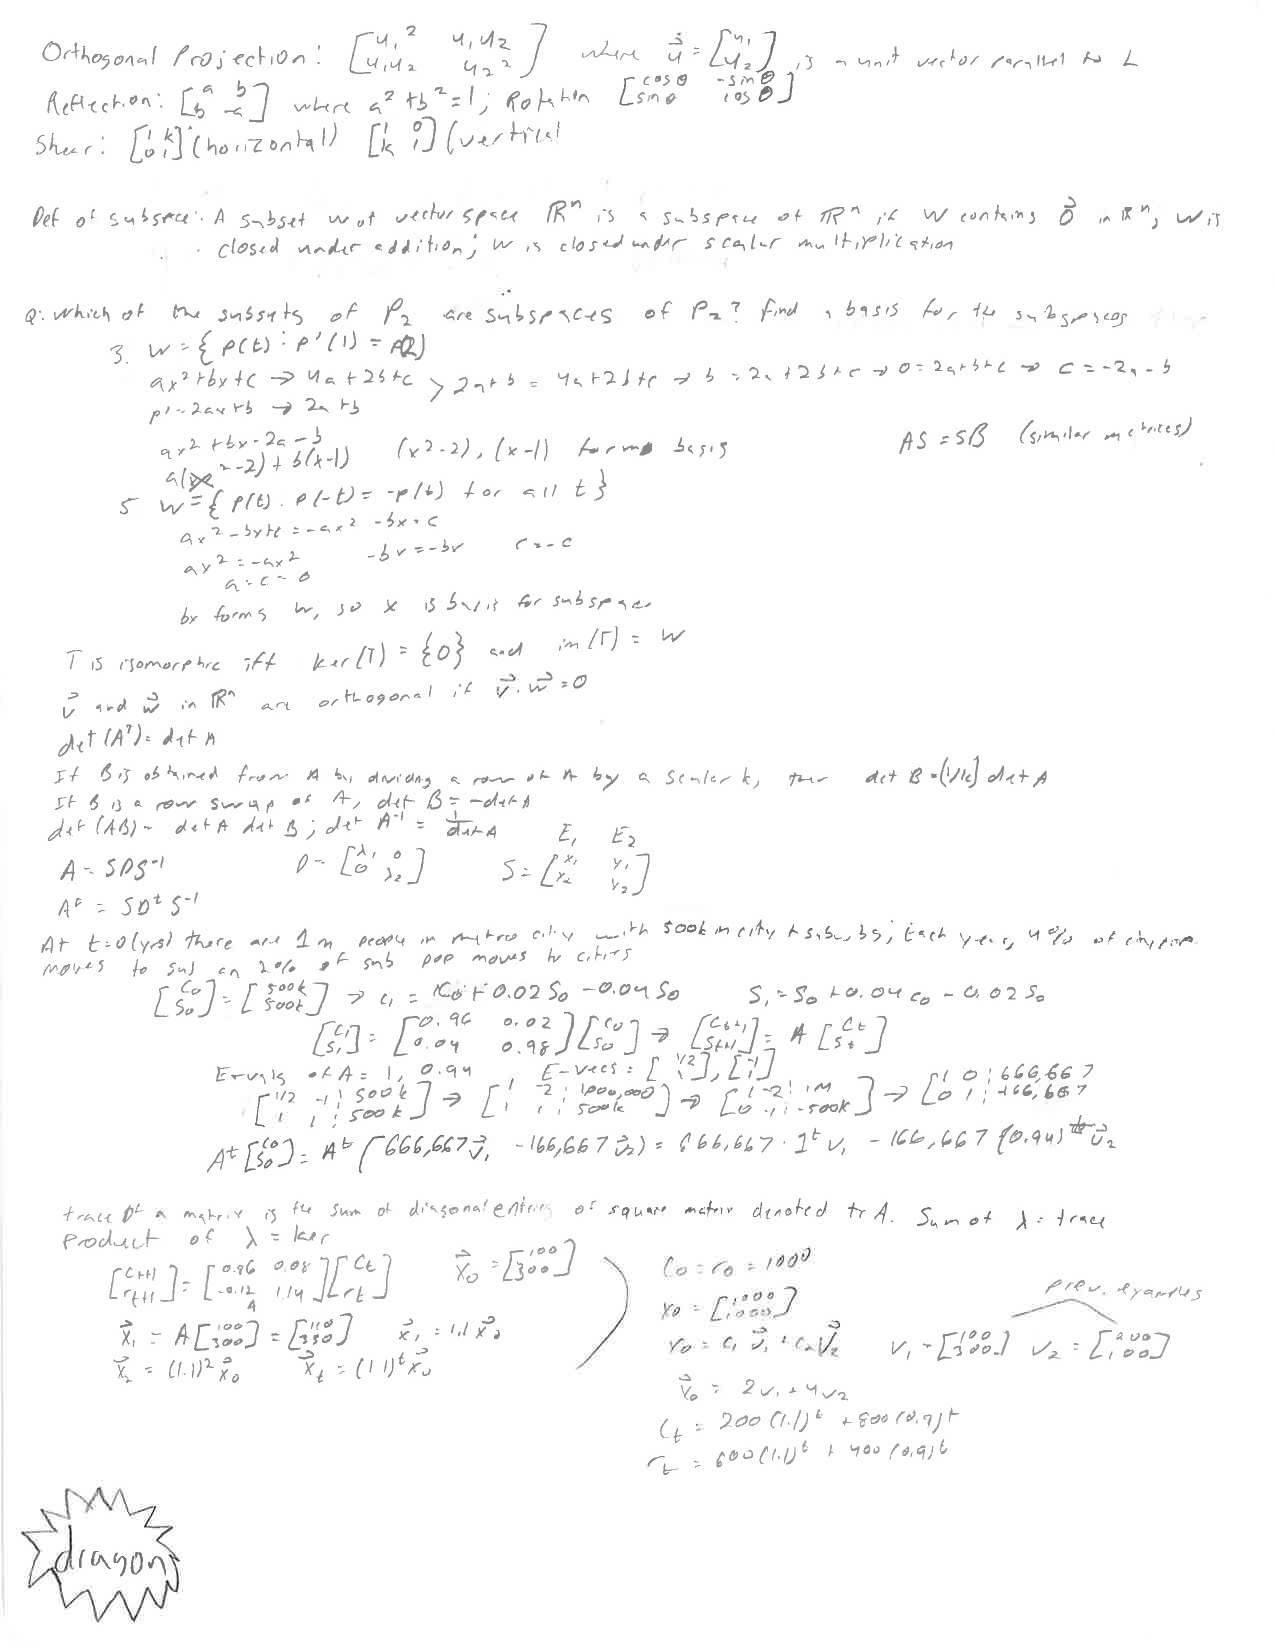 Orthogonal Projection: [u₁² u₁u₂ / u₁u₂ u₂²] where u⃗ = [u₁ / u₂], is a unit vector parallel to L
Reflection: [a b / b -a] where a² + b² = 1; Rotation [cosθ -sinθ / sinθ cosθ]
Shear: [1 k / 0 1] (horizontal) [1 0 / k 1] (vertical
Def of subspace: A subset W of vector space ℝⁿ is a subspace of ℝⁿ if W contains 0⃗ in ℝⁿ; W is
closed under addition; W is closed under scalar multiplication
Q: Which of the subsets of P₂ are subspaces of P₂? Find a basis for the subspaces
3. W = { p(t) : p'(1) = p(2)}
ax² + bx + c → 4a + 2b + c > 2a + b = 4a + 2b + c → b = 2a + 2b + c → 0 = 2a + b + c → c = -2a - b
p' = 2ax + b → 2a + b
ax² + bx - 2a - b
a(x² - 2) + b(x-1) (x² - 2), (x-1) forms basis
AS = SB (similar matrices)
5 W = { p(t). p(-t) = -p(t) for all t }
ax² - bx + c = -ax² - bx - c
ax² = -ax² -bx = -bx c = -c
a = c = 0
bx forms W, so x is basis for subspace
T is isomorphic iff ker(T) = {0} and im(T) = W
v⃗ and w⃗ in ℝⁿ are orthogonal if v⃗ · w⃗ = 0
det(Aᵀ) = det A
If B is obtained from A by dividing a row of A by a scalar k, then det B = (1/k) det A
If B is a row swap of A, det B = -det A
det(AB) = det A det B; det A⁻¹ = 1/det A
E₁ E₂
A = SDS⁻¹ D = [λ₁ 0 / 0 λ₂] S = [x₁ y₁ / x₂ y₂]
Aᵗ = SDᵗS⁻¹
At t=0 (yrs) there are 1 m people in metro city with 500k in city + suburbs; Each year, 4% of city pop
moves to sub an 2% of sub pop moves to cities
[C₀ / S₀] = [500k / 500k] → c₁ = C₀ + 0.02 S₀ - 0.04 S₀ S₁ = S₀ + 0.04 c₀ - 0.02 S₀
[C₁ / S₁] = [0.96 0.02 / 0.04 0.98] [C₀ / S₀] → [Ct+1 / St+1] = A [Ct / St]
E-vals of A = 1, 0.94 E-vecs = [1/2 / 1], [-1 / 1]
[1/2 -1 ¦ 500k / 1 1 ¦ 500k] → [1 -2 ¦ 1000,000 / 1 1 ¦ 500k] → [1 -2 ¦ 1M / 0 -1 ¦ -500k] → [1 0 ¦ 666,667 / 0 1 ¦ -166,667]
Aᵗ [C₀ / S₀] = Aᵗ (666,667 v⃗₁ - 166,667 v⃗₂) = 666,667 · 1ᵗ v₁ - 166,667 (0.94)ᵗ v⃗₂
trace of a matrix is the sum of diagonal entries of square matrix denoted tr A. Sum of λ = trace
Product of λ = ker
[Ct+1 / rt+1] = [0.96 0.08 / -0.12 1.14] [Ct / rt] x⃗₀ = [100 / 300]
A
x⃗₁ = A [100 / 300] = [110 / 330] x⃗₁ = 1.1 x⃗₀
x⃗₂ = (1.1)² x⃗₀ x⃗t = (1.1)ᵗ x⃗₀
C₀ = r₀ = 1000
x₀ = [1000 / 1000]
prev. examples
x₀ = c₁ v⃗₁ + c₂ v⃗₂ v₁ = [100 / 300] v₂ = [200 / 100]
x⃗₀ = 2v₁ + 4v₂
Ct = 200 (1.1)ᵗ + 800 (0.9)ᵗ
rt = 600 (1.1)ᵗ + 400 (0.9)ᵗ
dragon